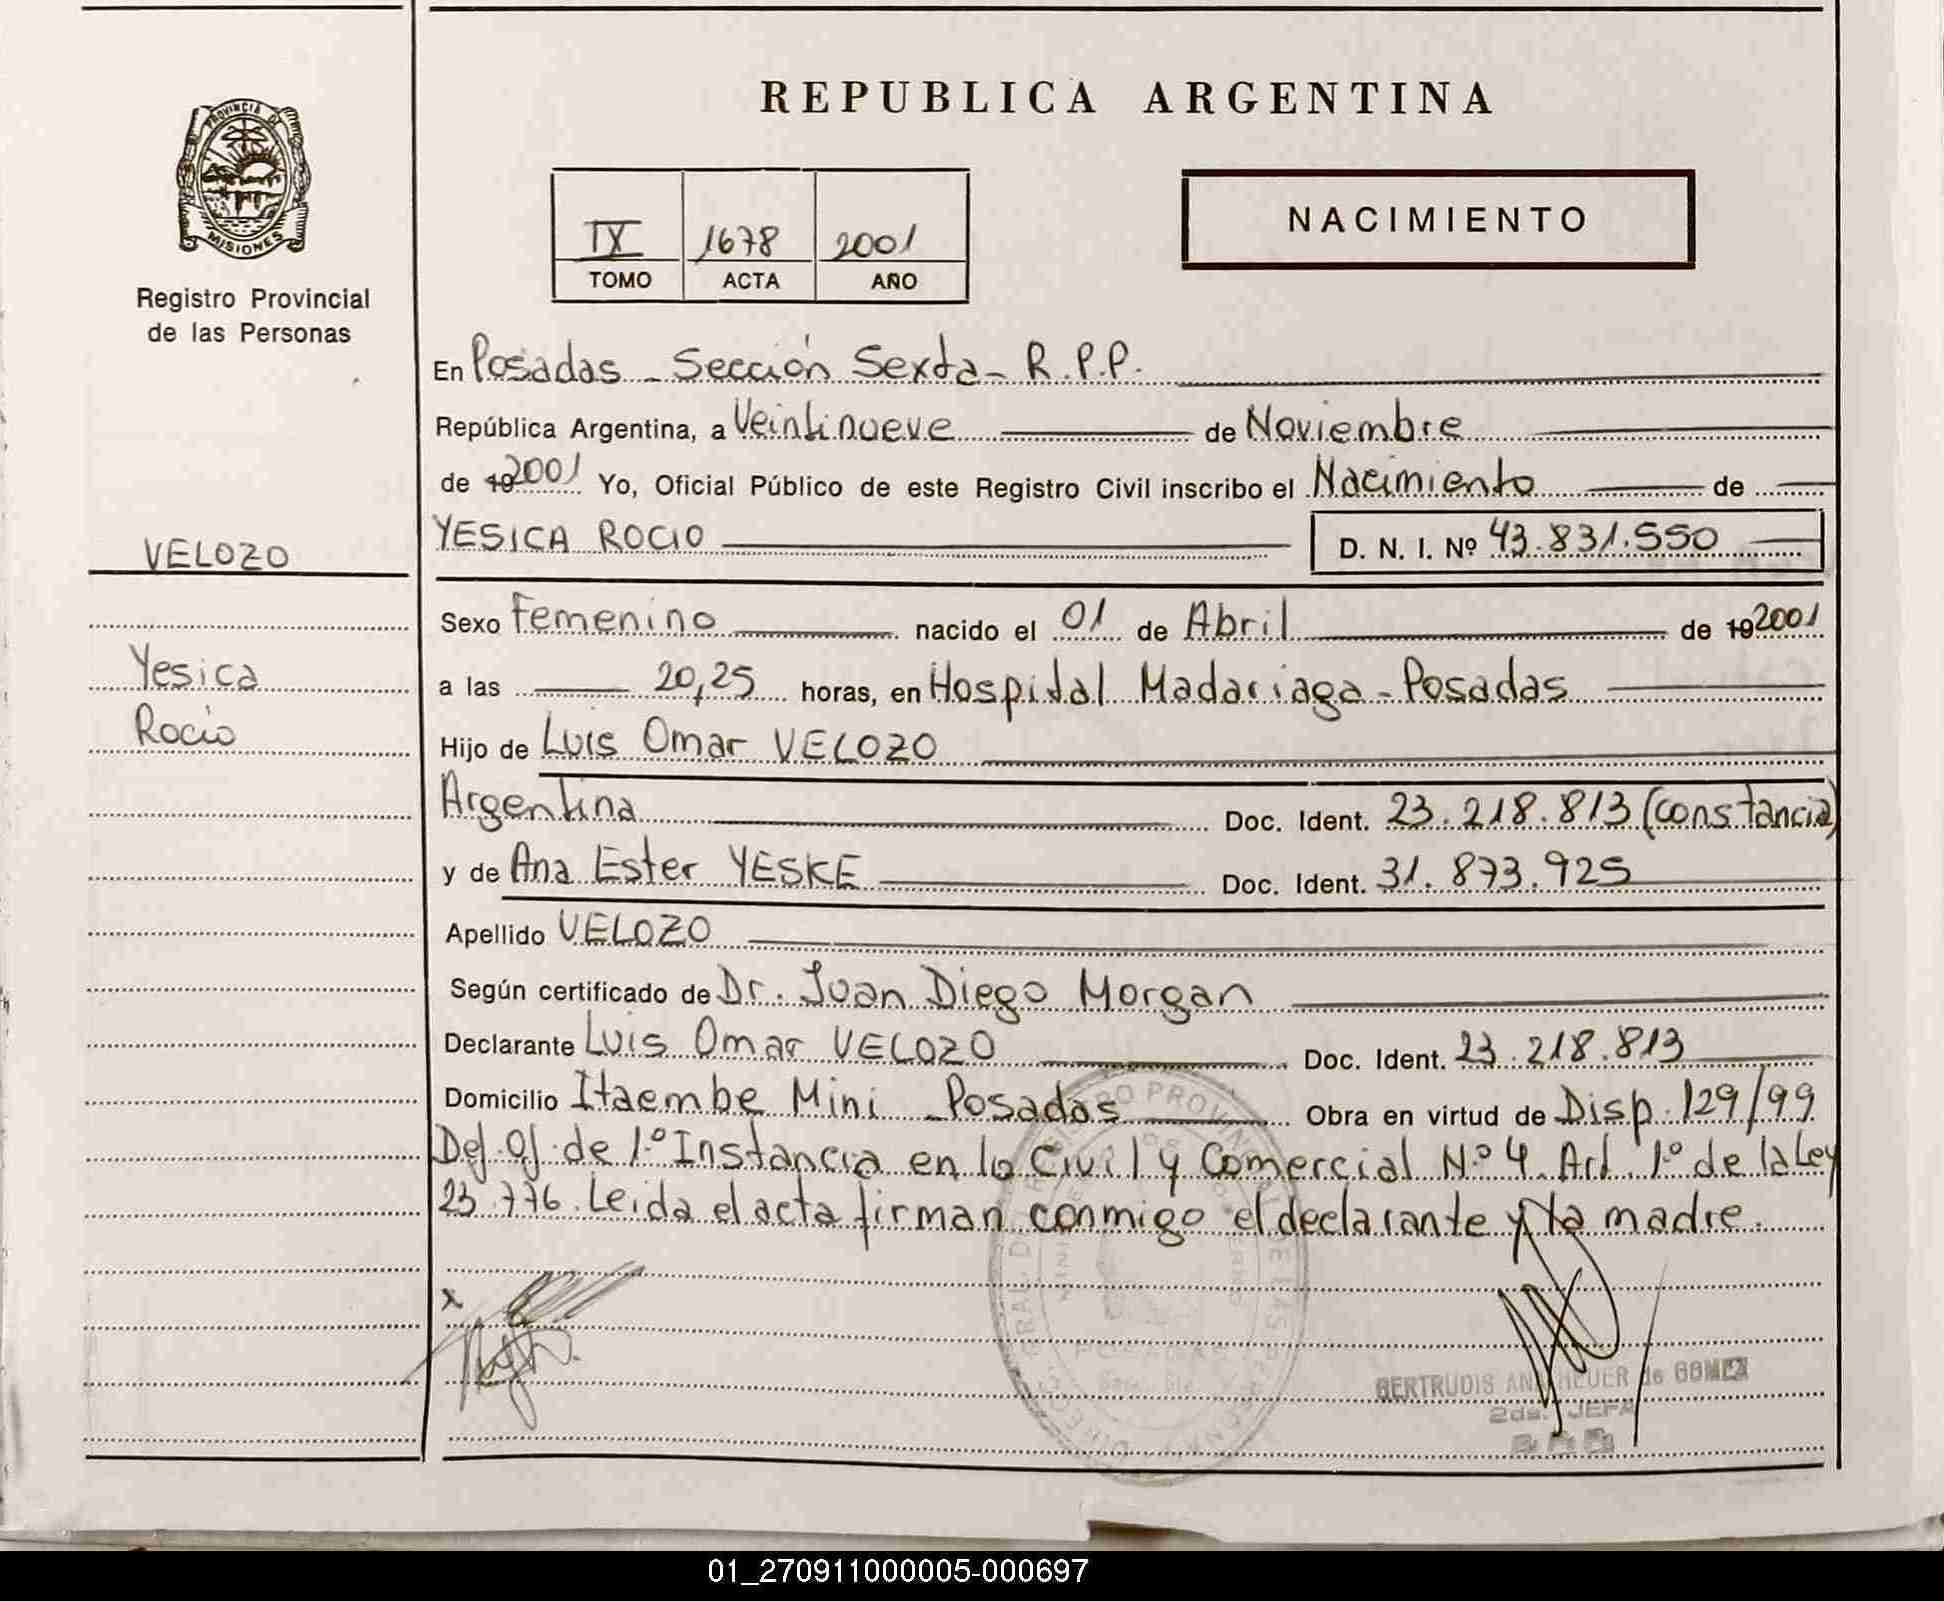 PROVINCIA DE
MISIONES
Registro Provincial
de las Personas
VELOZO
Yesica
Rocio
REPUBLICA ARGENTINA
IX 1678 2001
TOMO ACTA AÑO
NACIMIENTO
En Posadas - Sección Sexta - R.P.P.
República Argentina, a Veintinueve de Noviembre
de 19 2001 Yo, Oficial Público de este Registro Civil inscribo el Nacimiento de
YESICA ROCIO D. N. I. Nº 43.831.550
Sexo Femenino nacido el 01 de Abril de 19 2001
a las 20,25 horas, en Hospital Madariaga - Posadas
Hijo de Luis Omar VELOZO
Argentina Doc. Ident. 23.218.813 (constancia)
y de Ana Ester YESKE Doc. Ident. 31.873.925
Apellido VELOZO
Según certificado de Dr. Juan Diego Morgan
Declarante Luis Omar VELOZO Doc. Ident. 23.218.813
Domicilio Itaembe Mini - Posadas Obra en virtud de Disp. 129/99
Def. Of. de 1º Instancia en lo Civil y Comercial Nº 4. Art. 1º de la Ley
23.776. Leida el acta firman conmigo el declarante y la madre.
x
GERTRUDIS ANA HEUER de GOMEZ
2da. JEFA
01_270911000005-000697